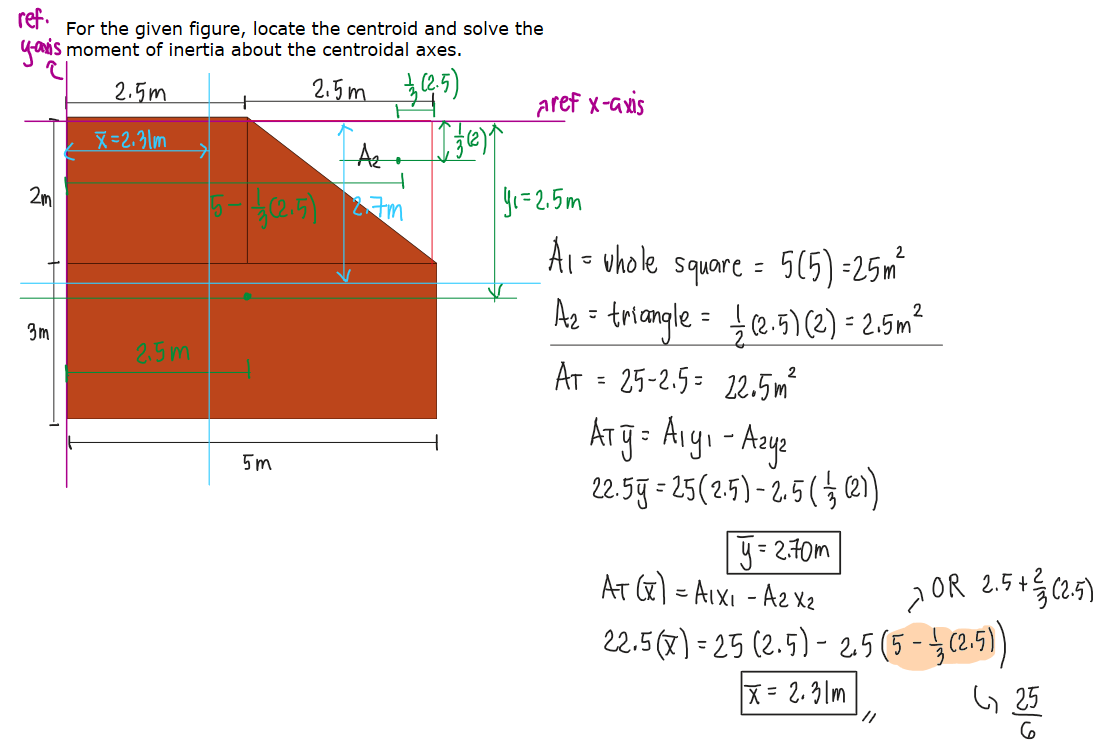 ref.
y-axis
For the given figure, locate the centroid and solve the
moment of inertia about the centroidal axes.
2.5m
2.5m
1/3(2.5)
ref x-axis
x̄=2.31m
A₂
1/3(2)
2m
5-1/3(2.5)
2.7m
y₁=2.5m
3m
2.5m
5m
A₁ = whole square = 5(5) =25m²
A₂ = triangle = 1/2(2.5)(2) = 2.5m²
AT = 25-2.5= 22.5m²
ATȳ= A₁y₁ - A₂y₂
22.5ȳ = 25(2.5)-2.5(1/3(2))
ȳ = 2.70m
AT(x̄) = A₁x₁ - A₂x₂
OR 2.5+2/3(2.5)
22.5(x̄) = 25(2.5) - 2.5(5-1/3(2.5))
x̄ = 2.31m
25/6